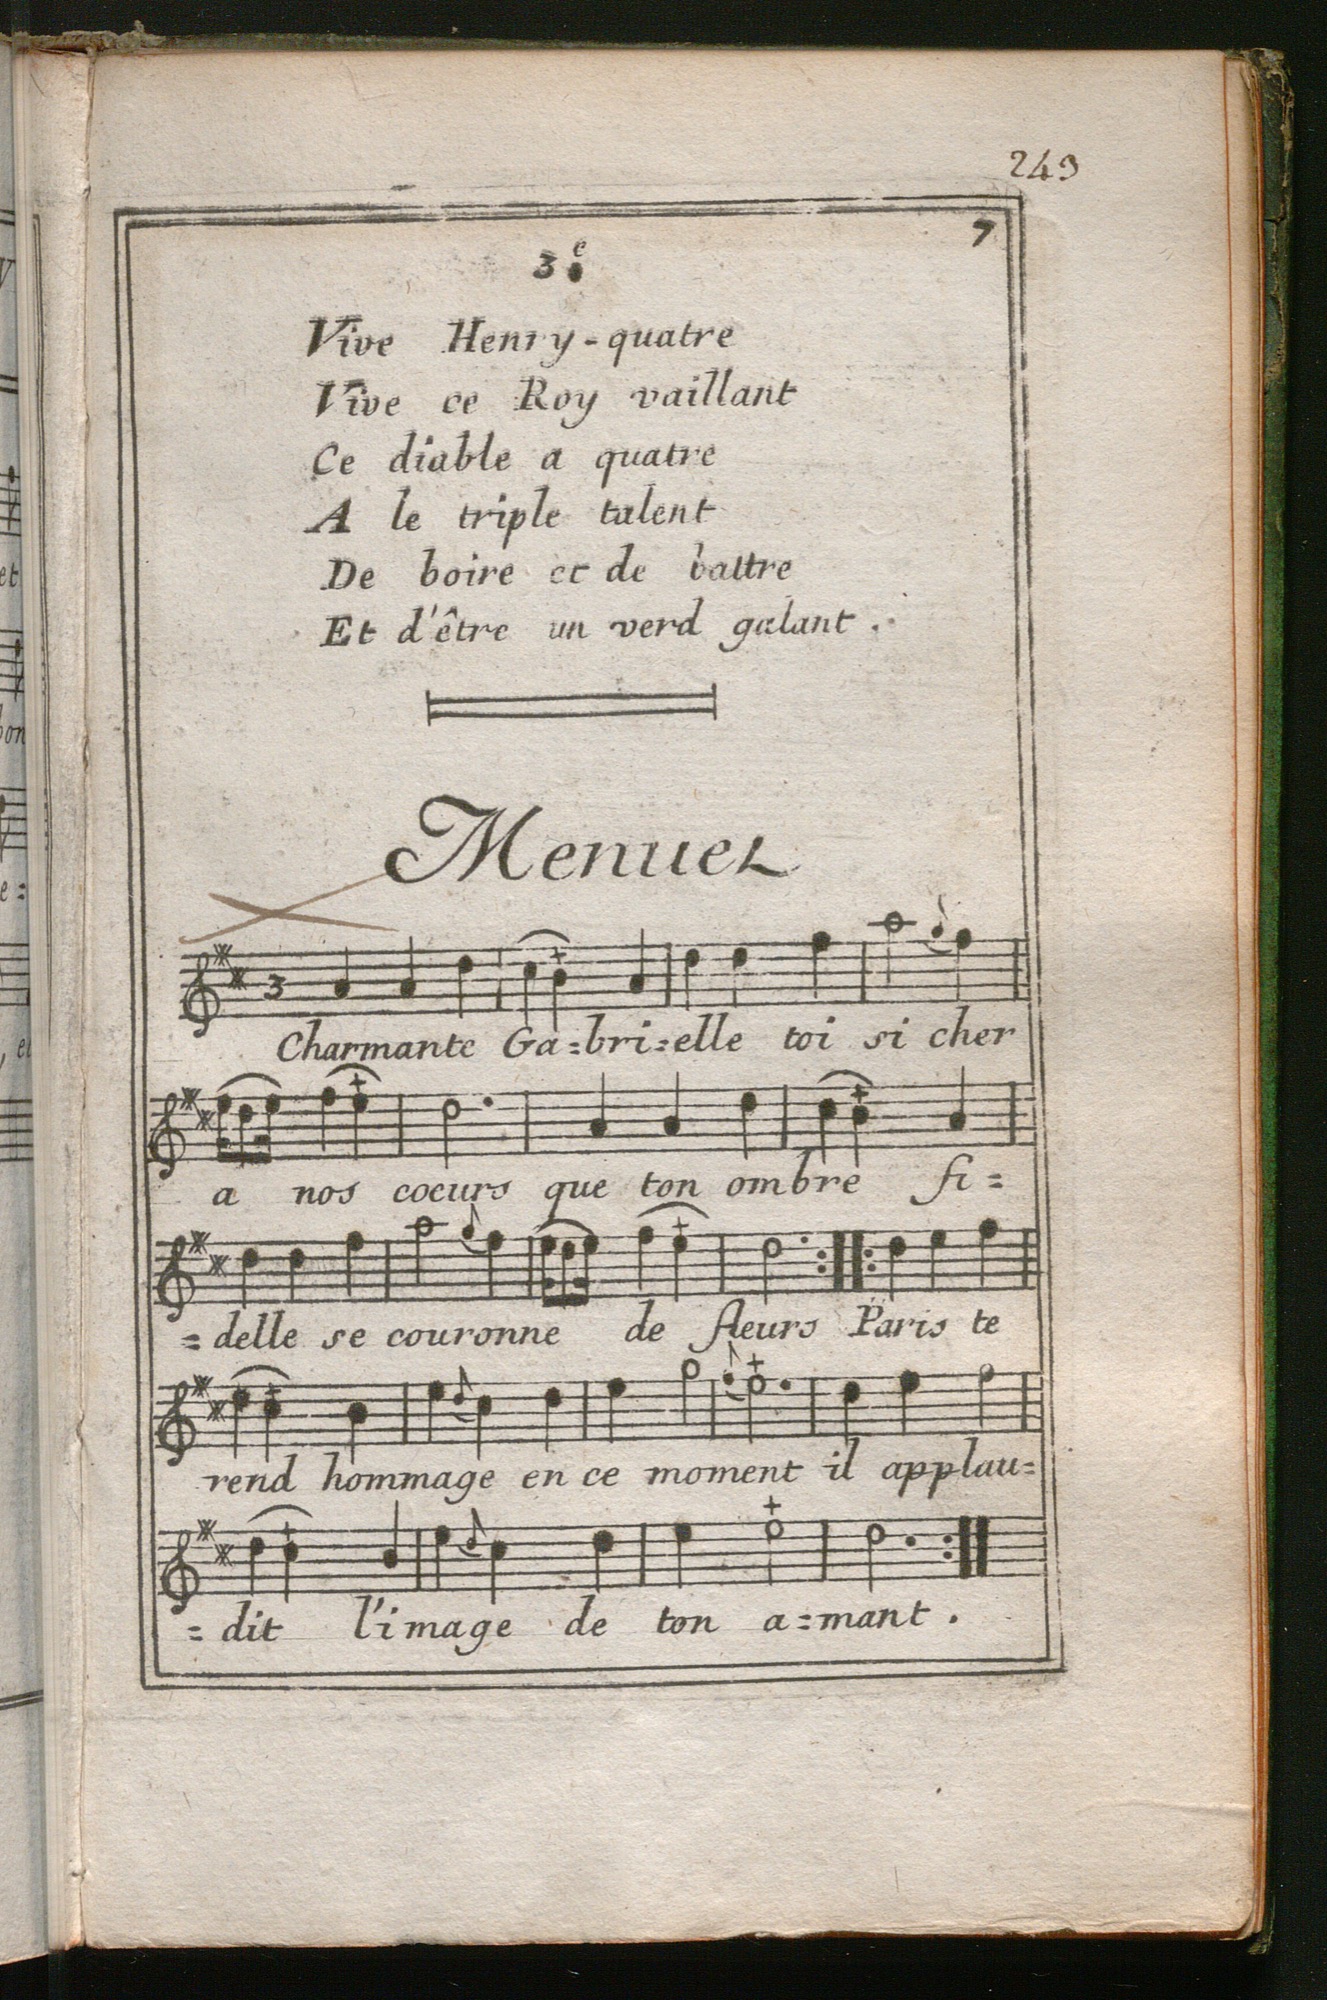 249
7
3e
Vive Henry-quatre
Vive ce Roy vaillant
Ce diable a quatre
A le triple talent
De boire et de battre
Et d'être un verd galant.
Menuet
3
Charmante Ga=bri=elle toi si cher
a nos coeurs que ton ombre fi=
=delle se couronne de fleurs Paris te
rend hommage en ce moment il applau=
=dit l'image de ton a=mant.